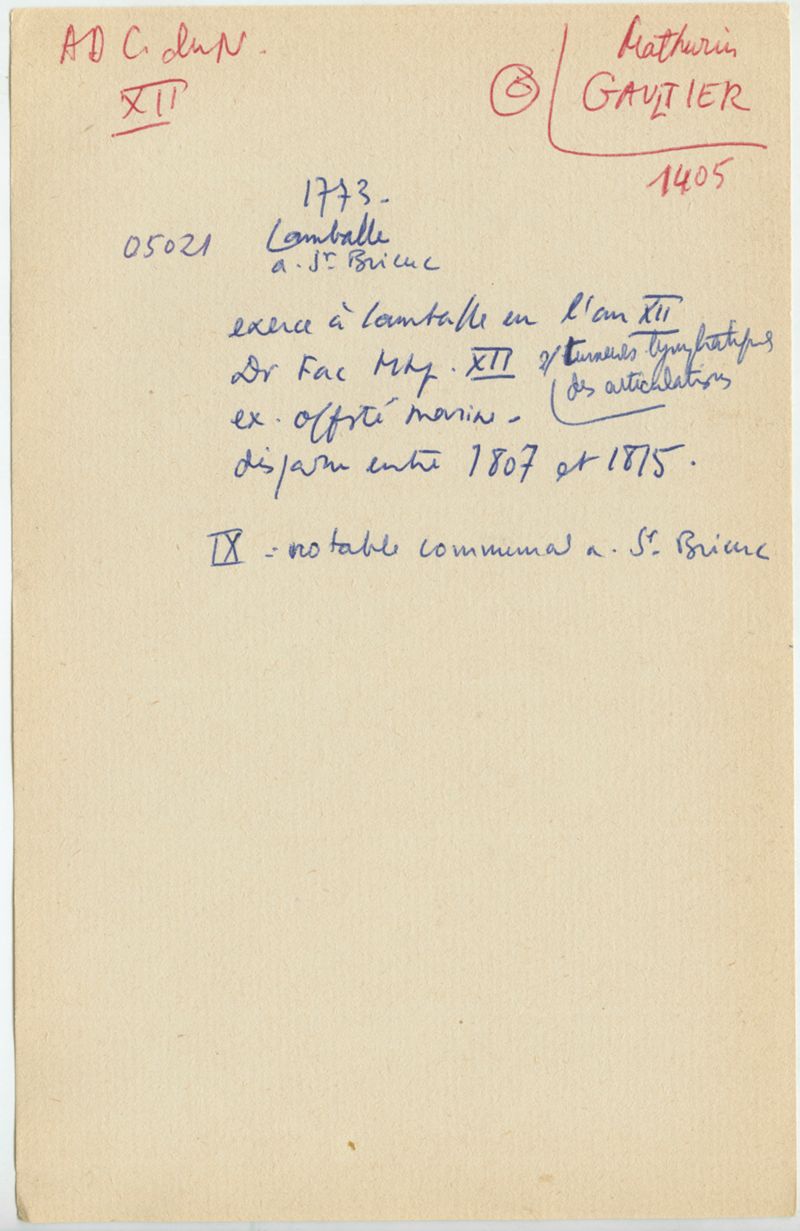 AD C. du N.
XII
Mathurin
③ GAULTIER
1405
1773.
05021 Lamballe
a. St Brieuc
exerce à Lamballe en l'an XII
Dr Fac Mtp. XII s/ tumeurs lymphatiques
des articulations
ex. offsté marine.
disparu entre 1807 et 1815.
IX = notable communal a. St Brieuc